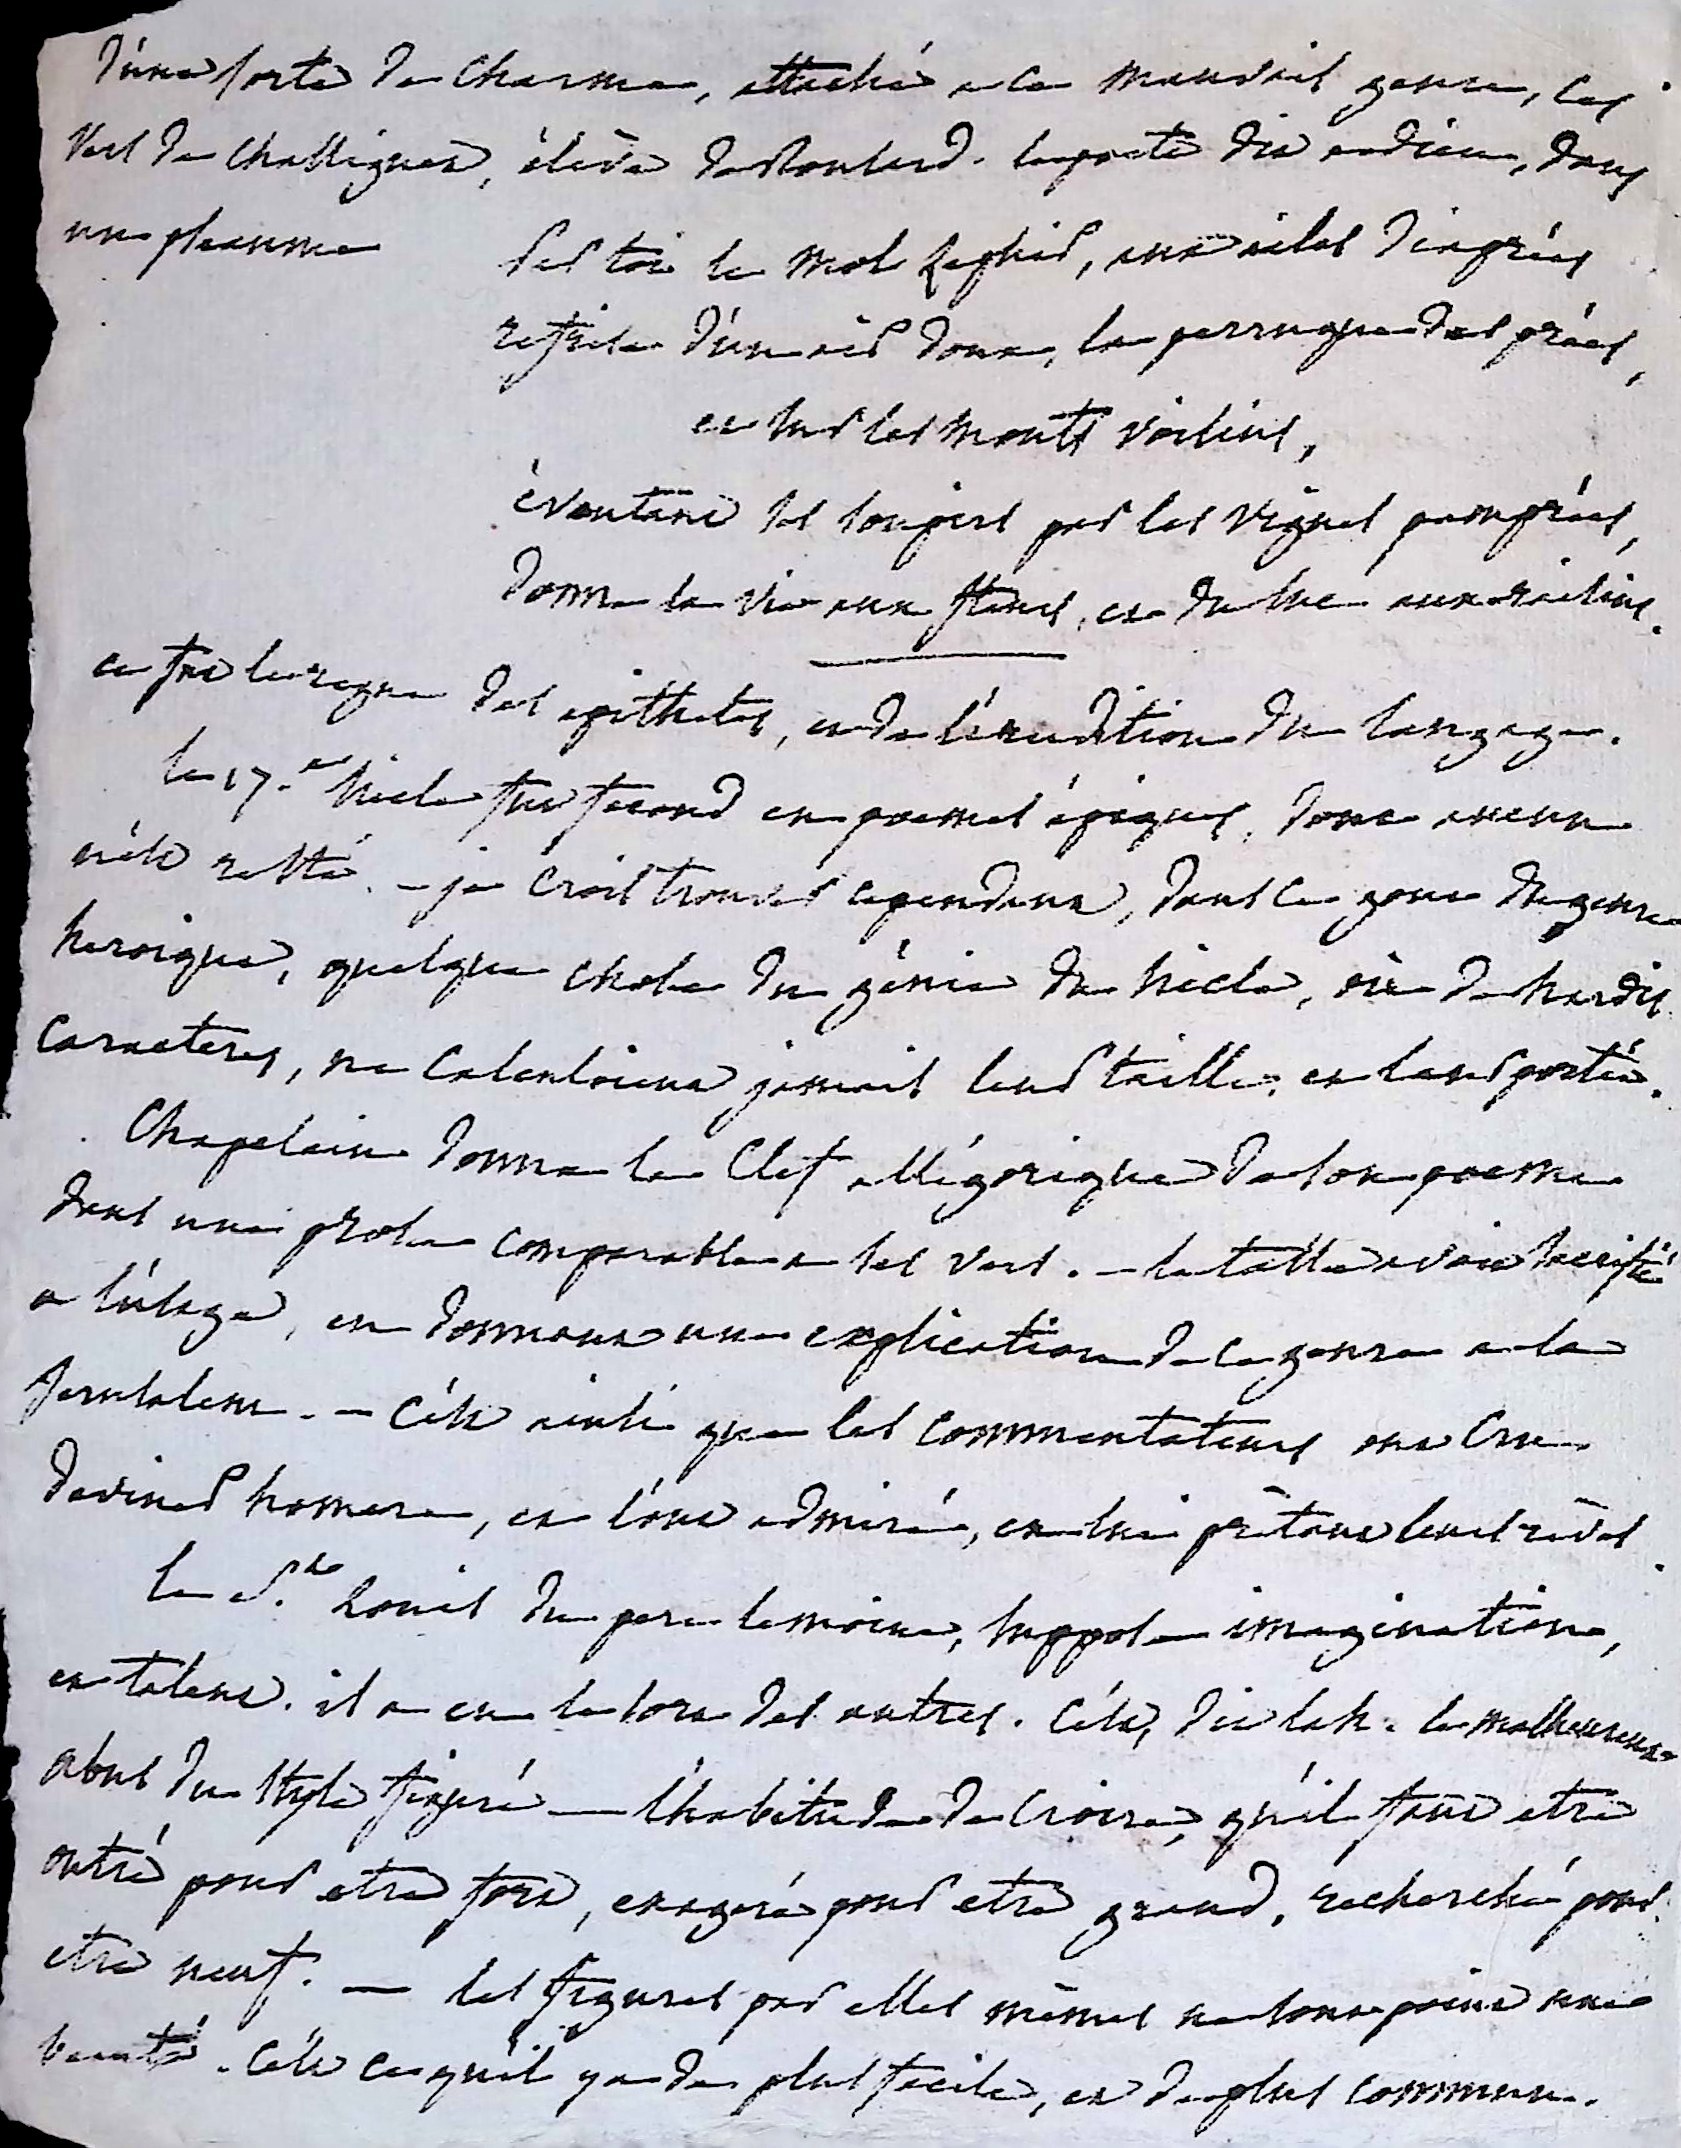 d'une sorte de charme, attaché a ce mauvais genre, les
vers de Chassignet, élève de Ronsard. le poete dit a dieu, dans
un pseaume
par toi le mol zéphir, aux ailes diaprées
refrise d'un air doux, la perruque des prées,
et sur les monts voisins,
éventant ses soupirs par les vignes pamprées,
donne la vie aux fleurs, et du suc aux raisins.
ce fut le regne des epithetes, et de l'érudition du langage.
le 17.e siecle fut fecond en poemes épiques, dont aucun
n'est resté. – je crois trouver cependant, dans ce gout du genre
heroique, quelque chose du génie du siecle, où de hardis
caracteres, ne calculoient jamais leur taille, et leur portée.
Chapelain donna la clef allégorique de son poeme
dans une prose comparable a ses vers. – le tasse avoit sacrifié
a l'usage, en donnant une explication de ce genre a la
Jerusalem. – c'est ainsi que les commentateurs ont cru
deviner homere, et l'ont admiré, en lui prêtant leurs rêves.
le St. Louis du pere lemoine, suppose imagination,
et talent. il a eu le sort des autres. c'est, dit lah. le malheureux
abus du style figuré — l'habitude de croire, qu'il faut etre
outré pour etre fort, exagéré pour etre grand, recherché pour
etre neuf. — les figures par elles mêmes ne sont point une
beauté. c'est ce qu'il y a de plus facile, et de plus commun.